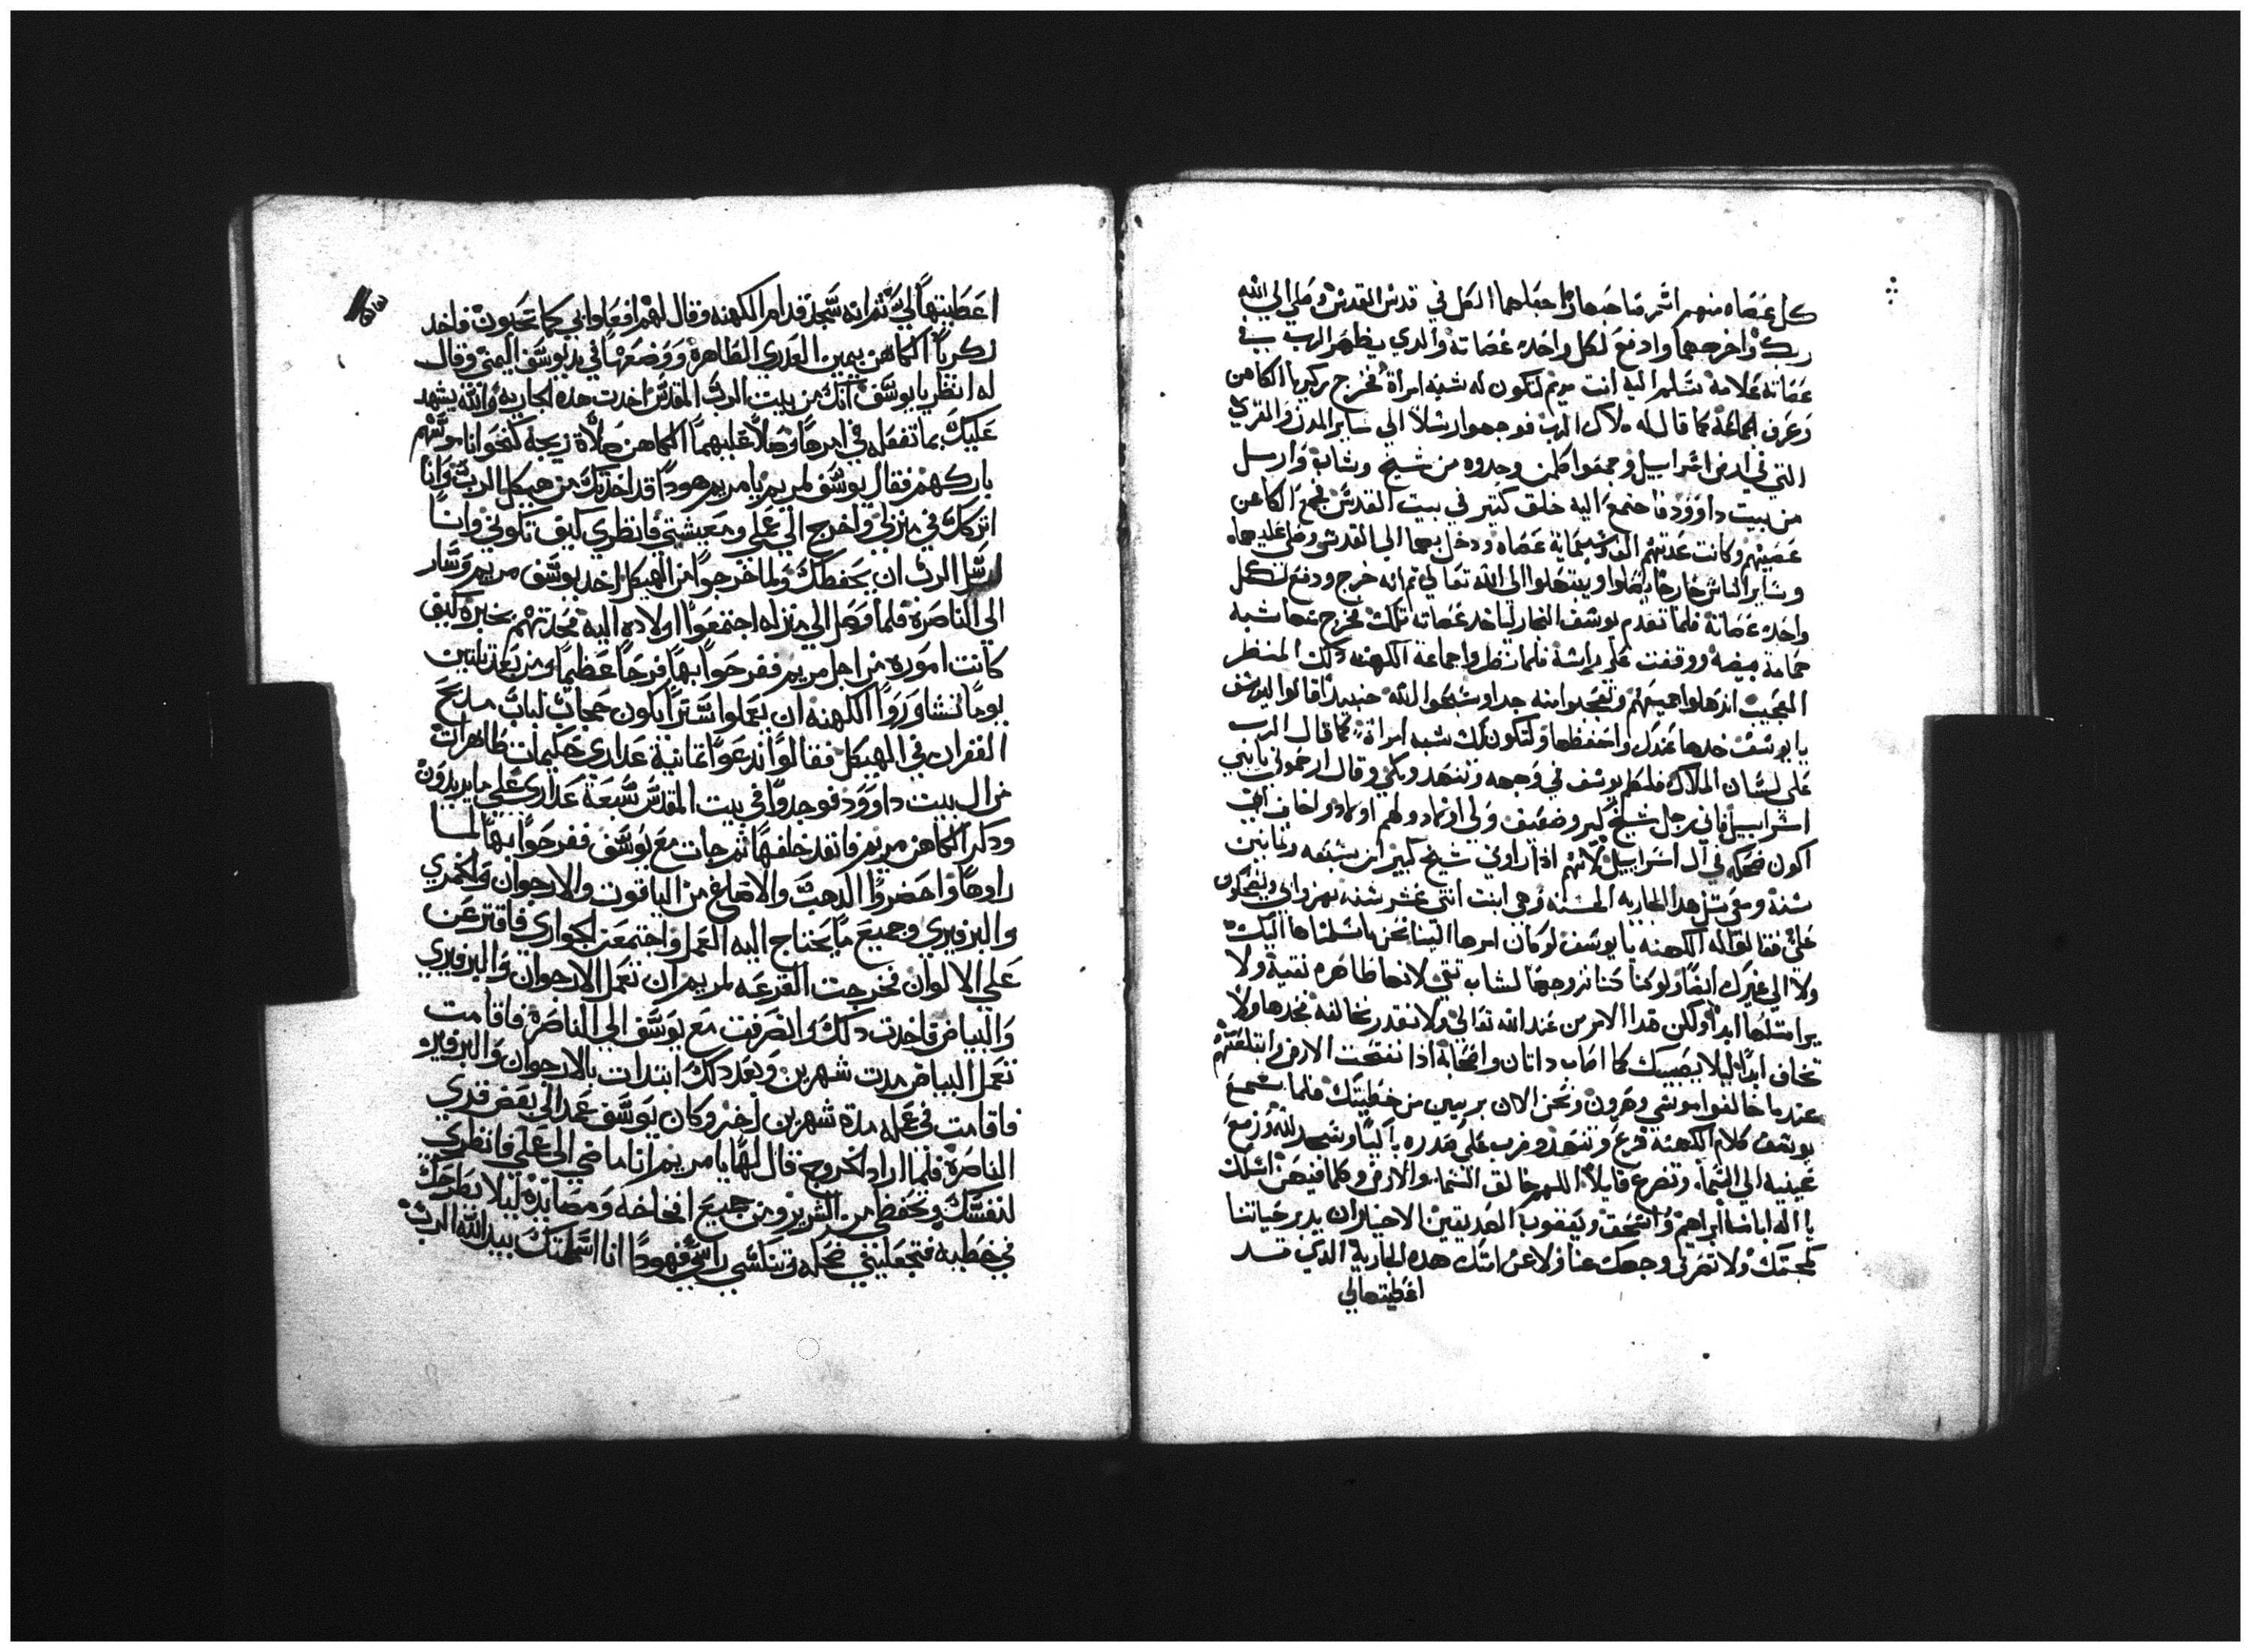 كل عصاه منهم اسم صاحبها واجعلها الكل في قدس القدس وصلي الي الله
ربك واخرجهما وادفع لكل واحد عصاته والدي يظهر الرب في
عصاته علامة تسلم اليه انت مريم لتكون له شبه امراة فخرج زكريا الكاهن
وعرف الجماعة كما قال له ملاك الرب فوجهوا رسلا الي ساير المدن والقري
التي في ارض اسراييل وجمعوا كلمن وجدوه من شيخ وشاب وارسل
من بيت داوود فاجتمع اليه خلق كتير في بيت القدس فجمع الكاهن
عصيهم وكانت عدتهم الف وسبعماية عصاه ودخل بهما الي القدس وصلي عليهما
وساير الناس خارجا يصلوا ويبتهلوا الي الله تعالي تم انه خرج ودفع لكل
واحد عصاته فلما تقدم يوسف النجار لياخد عصاته تلك فخرج عصا شبه
حمامة بيضه ووقفت علي راسه فلما نظروا جماعة الكهنه دلك المنظر
العجيب اندهلوا جميعهم وتعجبوا منه جدا وسبحوا الله حينيد قالوا ليوسف
يا يوسف خدها عندك واحفظها ولتكون لك شبه امراة كما قال الرب
علي لسان الملاك فلطم يوسف في وجهه وتنهد وبكي وقال ارحموني يا بني
اسراييل فاني رجل شيخ كبير وضعيف ولي اولاد ولهم اولاد واخاف ان
اكون ضحكه في ال اسراييل لانهم ادا راوني شيخ كبير ابن سبعه وتمانين
سنة ومعي متل هدا الجاريه الحسنه وهي ابنت اتني عشر سنه يهزوا بي ويضحكون
علي فقالوا له الكهنه يا يوسف لو كان امرها الينا نحن ما سلمناها اليك
ولا الي غيرك ايضا ولو كنا كنا نزوجها لشاب تقي لانها طاهره نقية ولا
يرا متلها ابدا ولكن هدا الامر من عند الله تعالي ولا نقدر نخالفه فخدها ولا
تخاف ابدا ليلا يصيبك كما اصاب داتان واصحابه ادا نفتحت الارض وابتلعتهم
عندما خالفوا موسي وهرون ونحن الان بريين من خطيتك فلما سمع
يوسف كلام الكهنه فزع وتنهد وضرب علي صدره باكيا وسجد لله ورفع
عينيه الي السما وتضرع قايلا اللهم خالق السما والارض وكلما فيهن اسلك
يا اله اباينا ابراهيم واسحق ويعقوب الصديقين الاخيار ان يدبر حياتنا
كمحبتك ولا تصرف وجهك عنا ولا عن امتك هده الجارية الدي قد
اعطيتهالي
اعطيتها لي ثم انه سجد قدام الكهنه وقال لهم افعلوا بي كما تحبون فاخد
زكريا الكاهن بيمين العدري الطاهرة ووضعها في يد يوسف اليمني وقال
له انظر يا يوسف انك من بيت الرب المقدس اخدت هده الجارية والله يشهد
عليك بما تفعله في امرها وصلا عليهما الكاهن صلاة زيجه كنحو اناموسهم
باركهم فقال يوسف لمريم يا مريم هودا قد اخدتك من هيكل الرب وانا
اتركك في منزلي واخرج الي عملي ومعيشتي فانظري كيف تكوني وانا
اسل الرب ان يحفظك ولما خرجوا من الهيكل اخد يوسف مريم وسار
الي الناصرة فلما وصل الي منزله اجتمعوا اولاده اليه فحدتهم بخبره كيف
كانت اموره من اجل مريم ففرحوا بها فرحا عظيما ومن بعد تلتين
يوما تشاوروا الكهنه ان يعملوا سترا يكون حجاب لباب مدبح
الغفران في الهيكل فقالوا ندعوا تمانية عداري حكيمات طاهرات
من ال بيت داوود فوجدوا في بيت المقدس سبعة عداري علي ما يريدون
ودكر الكاهن مريم فانفد خلفها ثم جات مع يوسف ففرحوا بها لما
راوها واحضروا الدهب والاصباغ من الياقوت والارجوان والخمري
والبرفيري وجميع ما يحتاج اليه العمل واجتمعن الجواري فاقترعن
علي الالوان فخرجت القرعه لمريم ان تعمل الارجوان والبرفيري
والبياض فاخدت دلك وانصرفت مع يوسف الي الناصرة فاقامت
تعمل البياض مدت شهرين وبعد دلك ابتدات بالارجوان والبرفير
فاقامت في عمله مدة شهرين اخر وكان يوسف عمد الي بعض قري
الناصرة فلما اراد الخروج قال لها يا مريم انا ماضي الي عملي فانظري
لنفسك وتحفظي من الشرير ومن جميع افخاخه ومصايده ليلا يطرحك
في خطيه فتجعليني ضحكه وتنكسي راسي فهودا انا اسلمتك بيد الله الرب